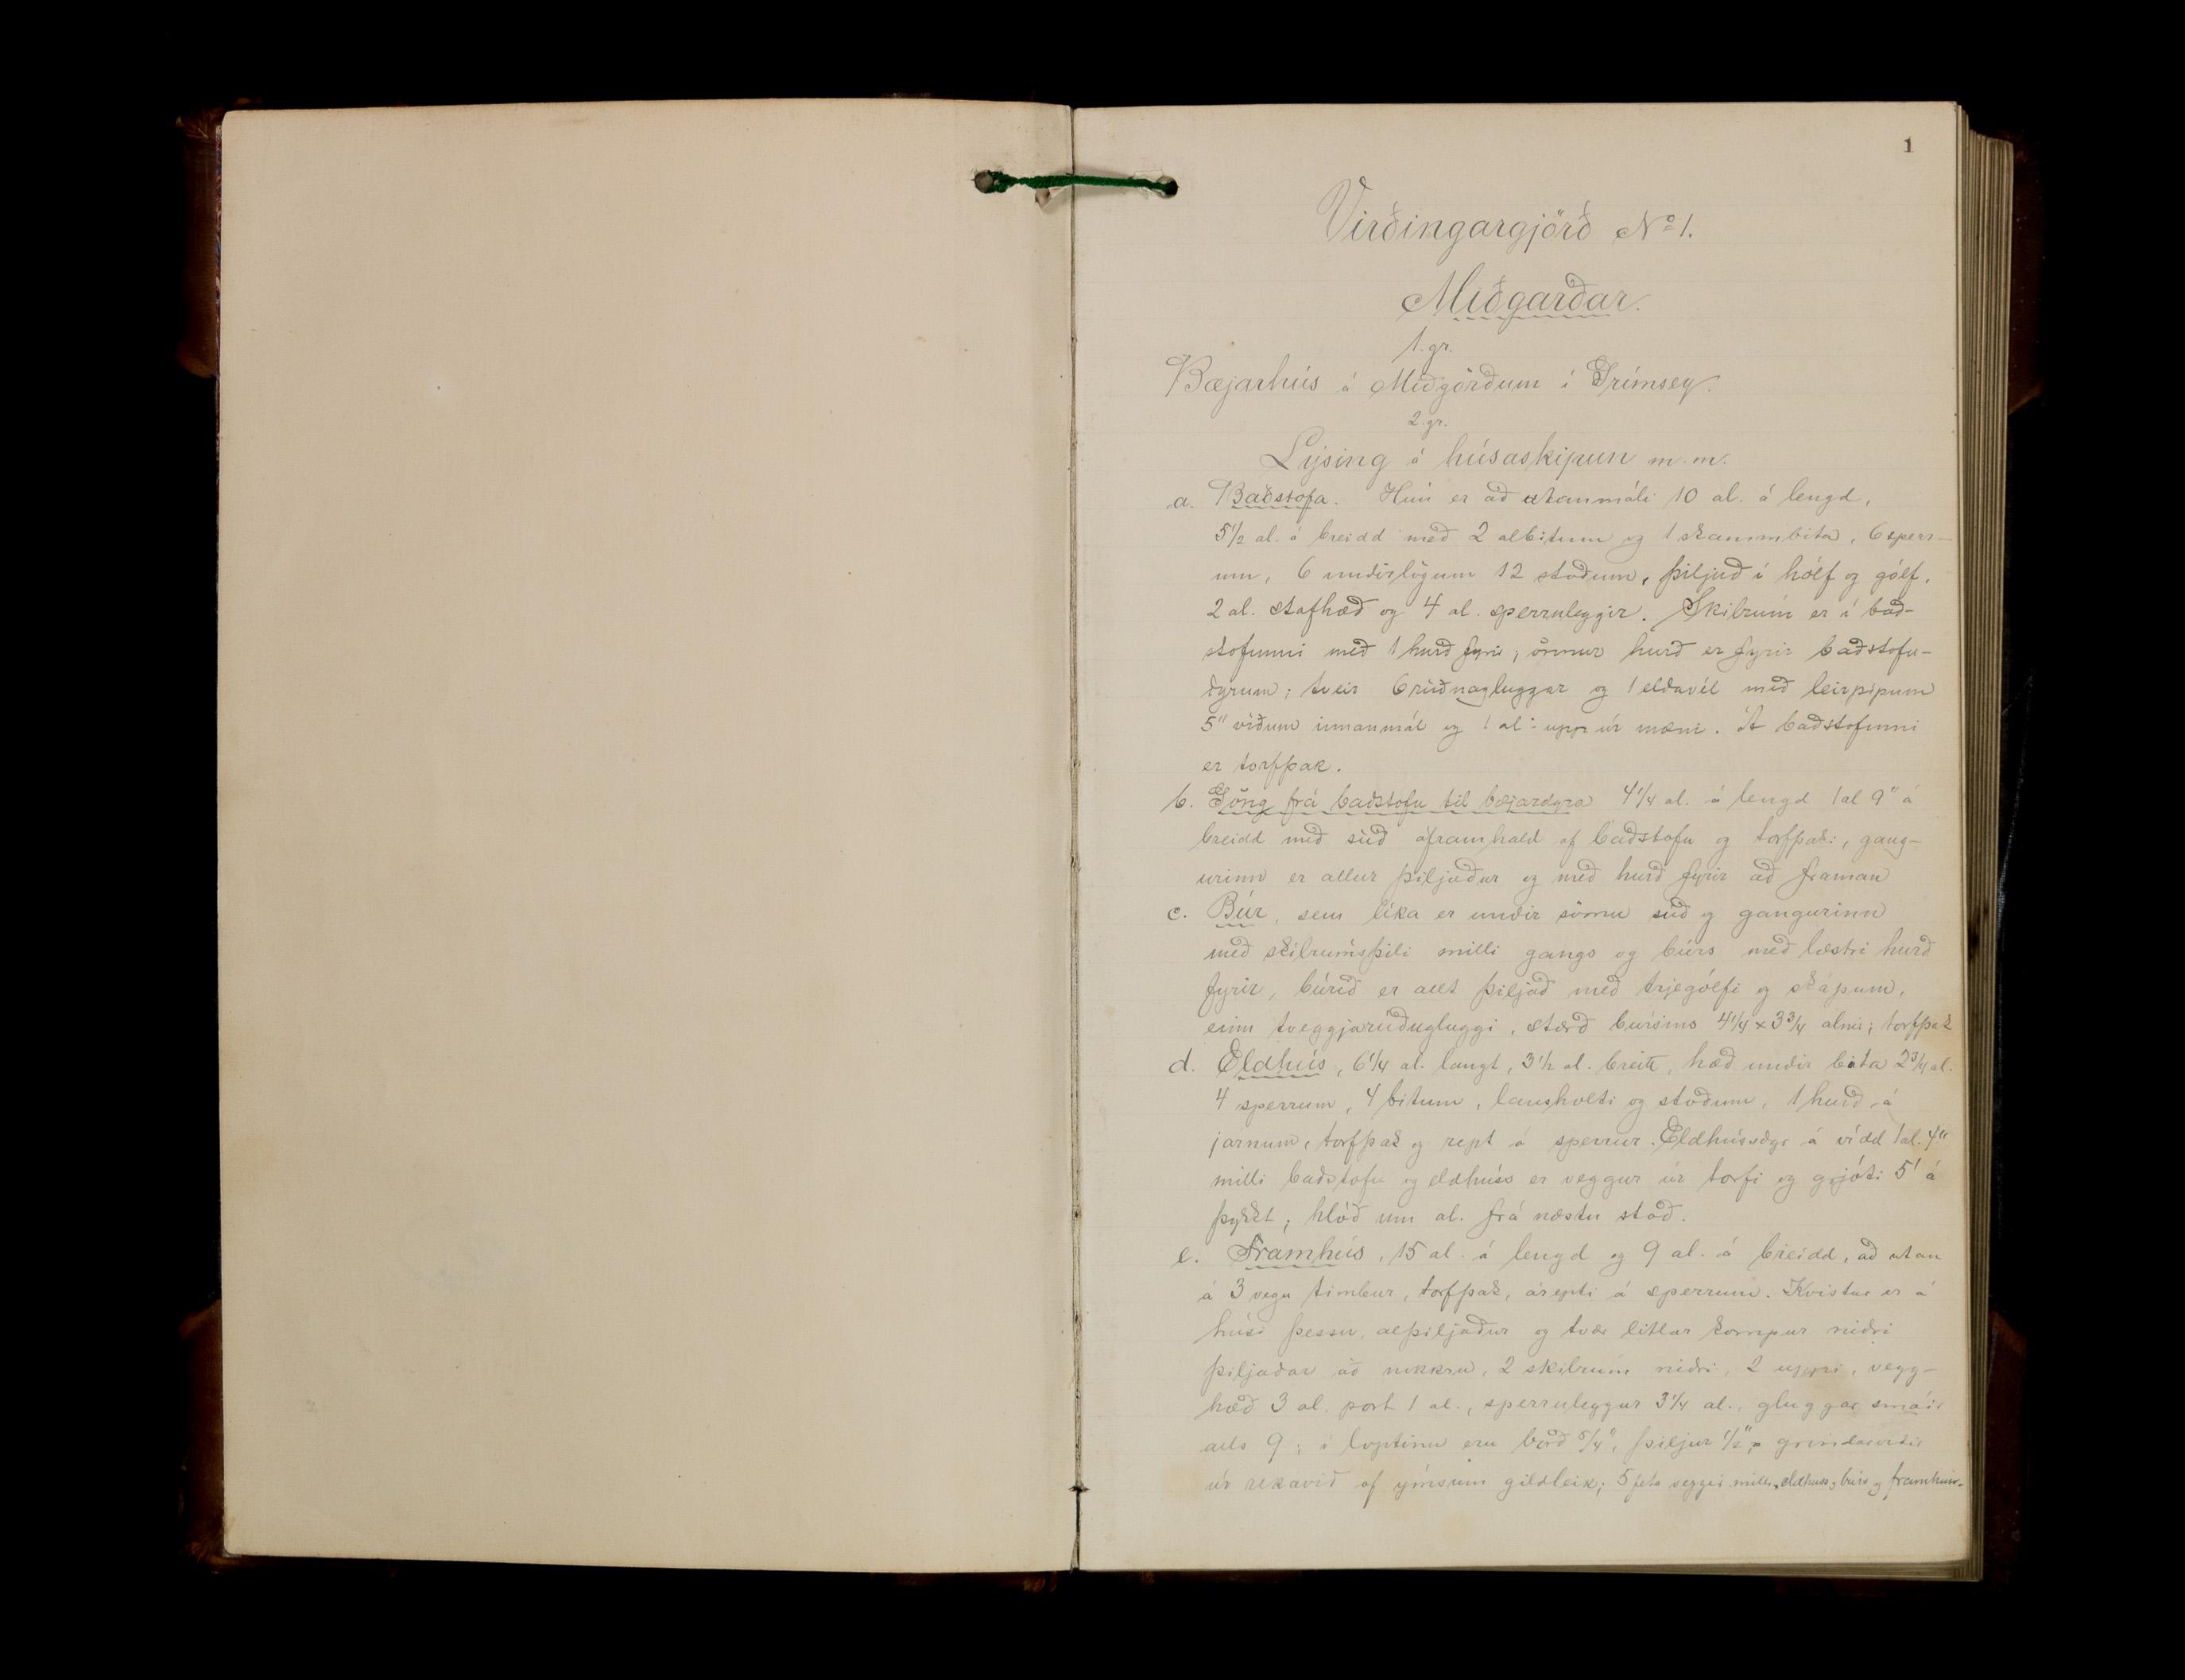 1
Virðingargjörð No 1.
Miðgarðar.
1. gr.
Bæjarhús á Miðgörðum í Grímsey.
2. gr.
Lýsing á húsaskipun m. m.
a. Baðstofa. Hún er að utanmáli 10 al. á lengd,
5 1/2 al. á breidd með 2 albitum og 1 skammbita, 6 sperr-
um, 6 undirlögum 12 stoðum, þiljuð í hólf og gólf,
2 al. stafhæð og 4 al. sperruleggir. Skilrúm er í bað-
stofunni með 1 hurð fyrir; önnur hurð er fyrir baðstofu-
dyrum; tveir 6 rúðnagluggar og 1 eldavél með leirpípum
5" víðum innanmál og 1 al. upp úr mæni. Á baðstofunni
er torfþak.
b. Göng frá baðstofu til bæjardyra 4 1/4 al. á lengd 1 al 9" á
breidd með súð áframhald af baðstofu og torfþaki, gang-
urinn er allur þiljaður og með hurð fyrir að framan
c. Búr, sem líka er undir sömu súð og gangurinn
með skilrúmsþili milli gangs og búrs með læstri hurð
fyrir, búrið er allt þiljað með trjególfi og skápum,
einn tveggjarúðugluggi, stærð búrsins 4 1/4 x 3 3/4 alnir; torfþak
d. Eldhús, 6 1/4 al. langt, 3 1/2 al. breitt, hæð undir bita 2 3/4 al.
4 sperrum, 4 bitum, lausholti og stoðum, 1 hurð á
járnum, torfþak og rept á sperrur. Eldhúsdyr á vídd 1 al. 4"
milli baðstofu og eldhúss er veggur úr torfi og grjóti 5' á
þykkt; hlóð um al. frá næstu stoð.
e. Framhús, 15 al. á lengd og 9 al. á breidd, að utan
á 3 vegu timbur, torfþak, árepti á sperrum. Kvistur er á
húsi þessu, alþiljaður og tvær litlar kompur niðri
þiljaðar að nokkru, 2 skilrúm niðri, 2 uppi, vegg-
hæð 3 al. port 1 al., sperruleggur 3 1/4 al., gluggar smáir
alls 9; í loptinu eru borð 5/4", þiljur 1/2",
úr rekavið af ýmsum gildleik; 5 feta veggir milli eldhúss, búrs og framhúss.